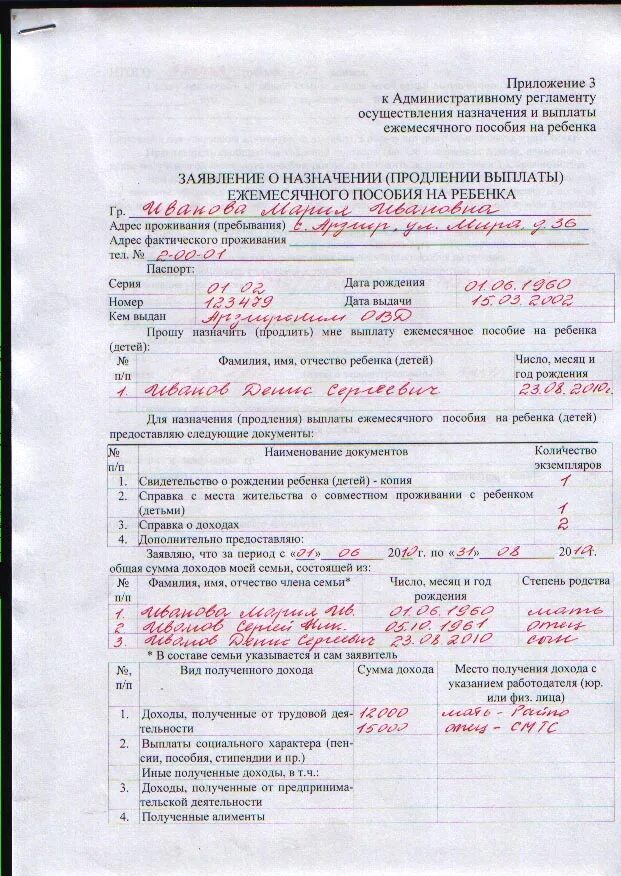 Приложение 3
к Административному регламенту
осуществления назначения и выплаты
ежемесячного пособия на ребенка
ЗАЯВЛЕНИЕ О НАЗНАЧЕНИИ (ПРОДЛЕНИИ ВЫПЛАТЫ)
ЕЖЕМЕСЯЧНОГО ПОСОБИЯ НА РЕБЕНКА
Гр. Иванова Мария Ивановна
Адрес проживания (пребывания) с. Арзгир, ул. Мира, д. 36
Адрес фактического проживания
тел. № 2-00-01
Паспорт:
Серия 01 02 Дата рождения 01.06.1960
Номер 123479 Дата выдачи 15.03.2002
Кем выдан Арзгирским ОВД
Прошу назначить (продлить) мне выплату ежемесячное пособие на ребенка
(детей):
№ п/п Фамилия, имя, отчество ребенка (детей) Число, месяц и год рождения
1. Иванов Денис Сергеевич 23.08.2010г.
Для назначения (продления) выплаты ежемесячного пособия на ребенка (детей)
предоставляю следующие документы:
№ п/п Наименование документов Количество экземпляров
1. Свидетельство о рождении ребенка (детей) - копия 1
2. Справка с места жительства о совместном проживании с ребенком
(детьми) 1
3. Справка о доходах 2
4. Дополнительно предоставляю:
Заявляю, что за период с «01» 06 2010г. по «31» 08 2010г.
общая сумма доходов моей семьи, состоящей из:
№ п/п Фамилия, имя, отчество члена семьи* Число, месяц и год рождения Степень родства
1. Иванова Мария Ив. 01.06.1960 мать
2 Иванов Сергей Ник. 05.10.1961 отец
3. Иванов Денис Сергеевич 23.08.2010 сын
* В составе семьи указывается и сам заявитель
№, п/п Вид полученного дохода Сумма дохода Место получения дохода с указанием работодателя (юр. или физ. лица)
1. Доходы, полученные от трудовой дея- 12000 мать - Райпо
тельности 15000 отец - СМТС
2. Выплаты социального характера (пен-
сии, пособия, стипендии и пр.)
Иные полученные доходы, в т.ч.:
3. Доходы, полученные от предпринима-
тельской деятельности
4. Полученные алименты